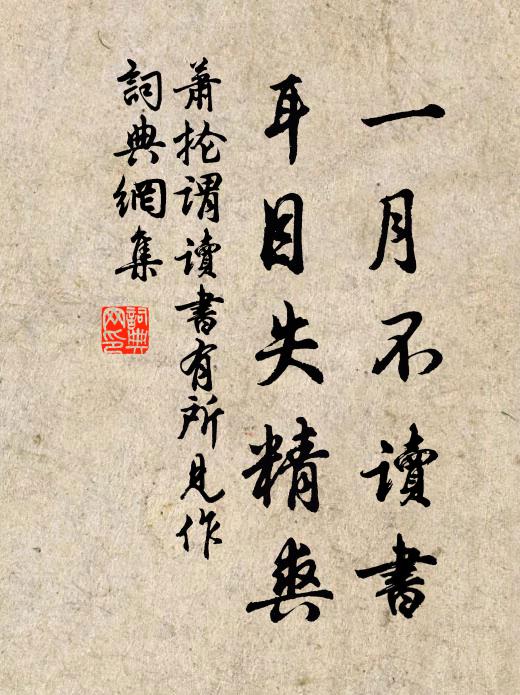 一月不讀書
耳目失精爽
蕭掄謂讀書有所見作
詞典網集
詞典
网印